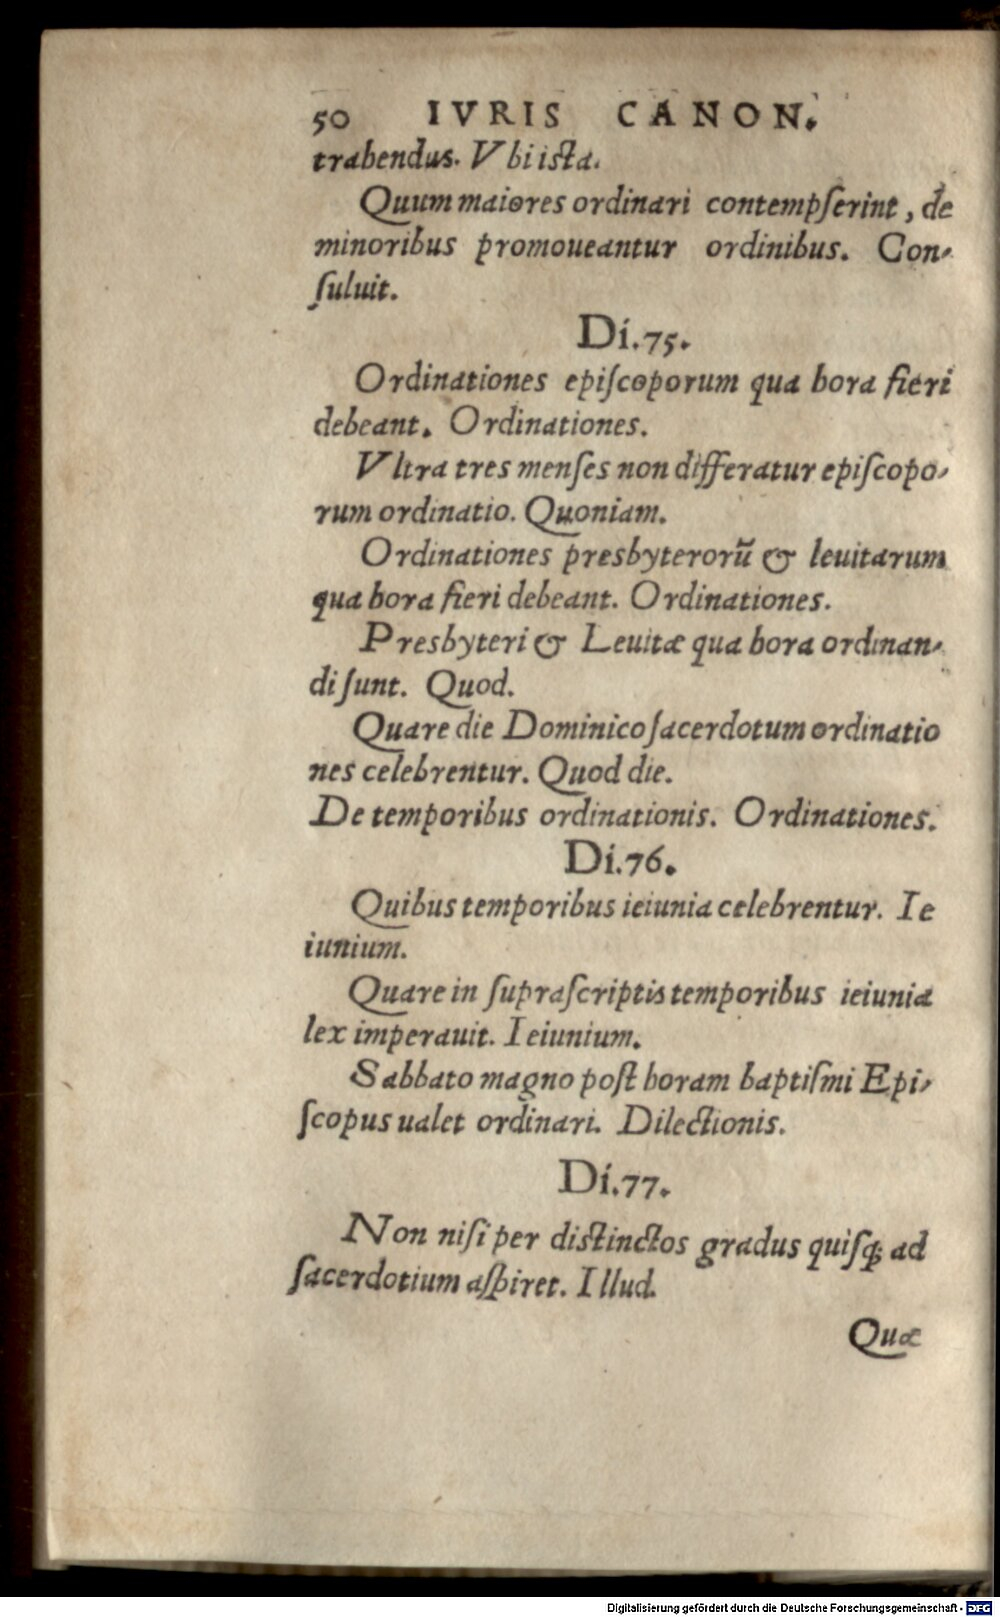 50 IVRIS CANON.
trahendus. Vbi ista.
Quum maiores ordinari contempſerint, de
minoribus promoueantur ordinibus. Con-
ſuluit.
Di.75.
Ordinationes epiſcoporum qua hora fieri
debeant. Ordinationes.
Vltra tres menſes non differatur epiſcopo-
rum ordinatio. Quoniam.
Ordinationes presbyterorū & leuitarum
qua hora fieri debeant. Ordinationes.
Presbyteri & Leuitæ qua hora ordinan-
di ſunt. Quod.
Quare die Dominico ſacerdotum ordinatio
nes celebrentur. Quod die.
De temporibus ordinationis. Ordinationes.
Di.76.
Quibus temporibus ieiunia celebrentur. Ie
iunium.
Quare in ſupraſcriptis temporibus ieiunia
lex imperauit. Ieiunium.
Sabbato magno poſt horam baptiſmi Epi-
ſcopus ualet ordinari. Dilectionis.
Di.77.
Non niſi per distinctos gradus quiſq; ad
ſacerdotium aſpiret. Illud.
Quæ
Digitalisierung gefördert durch die Deutsche Forschungsgemeinschaft - DFG